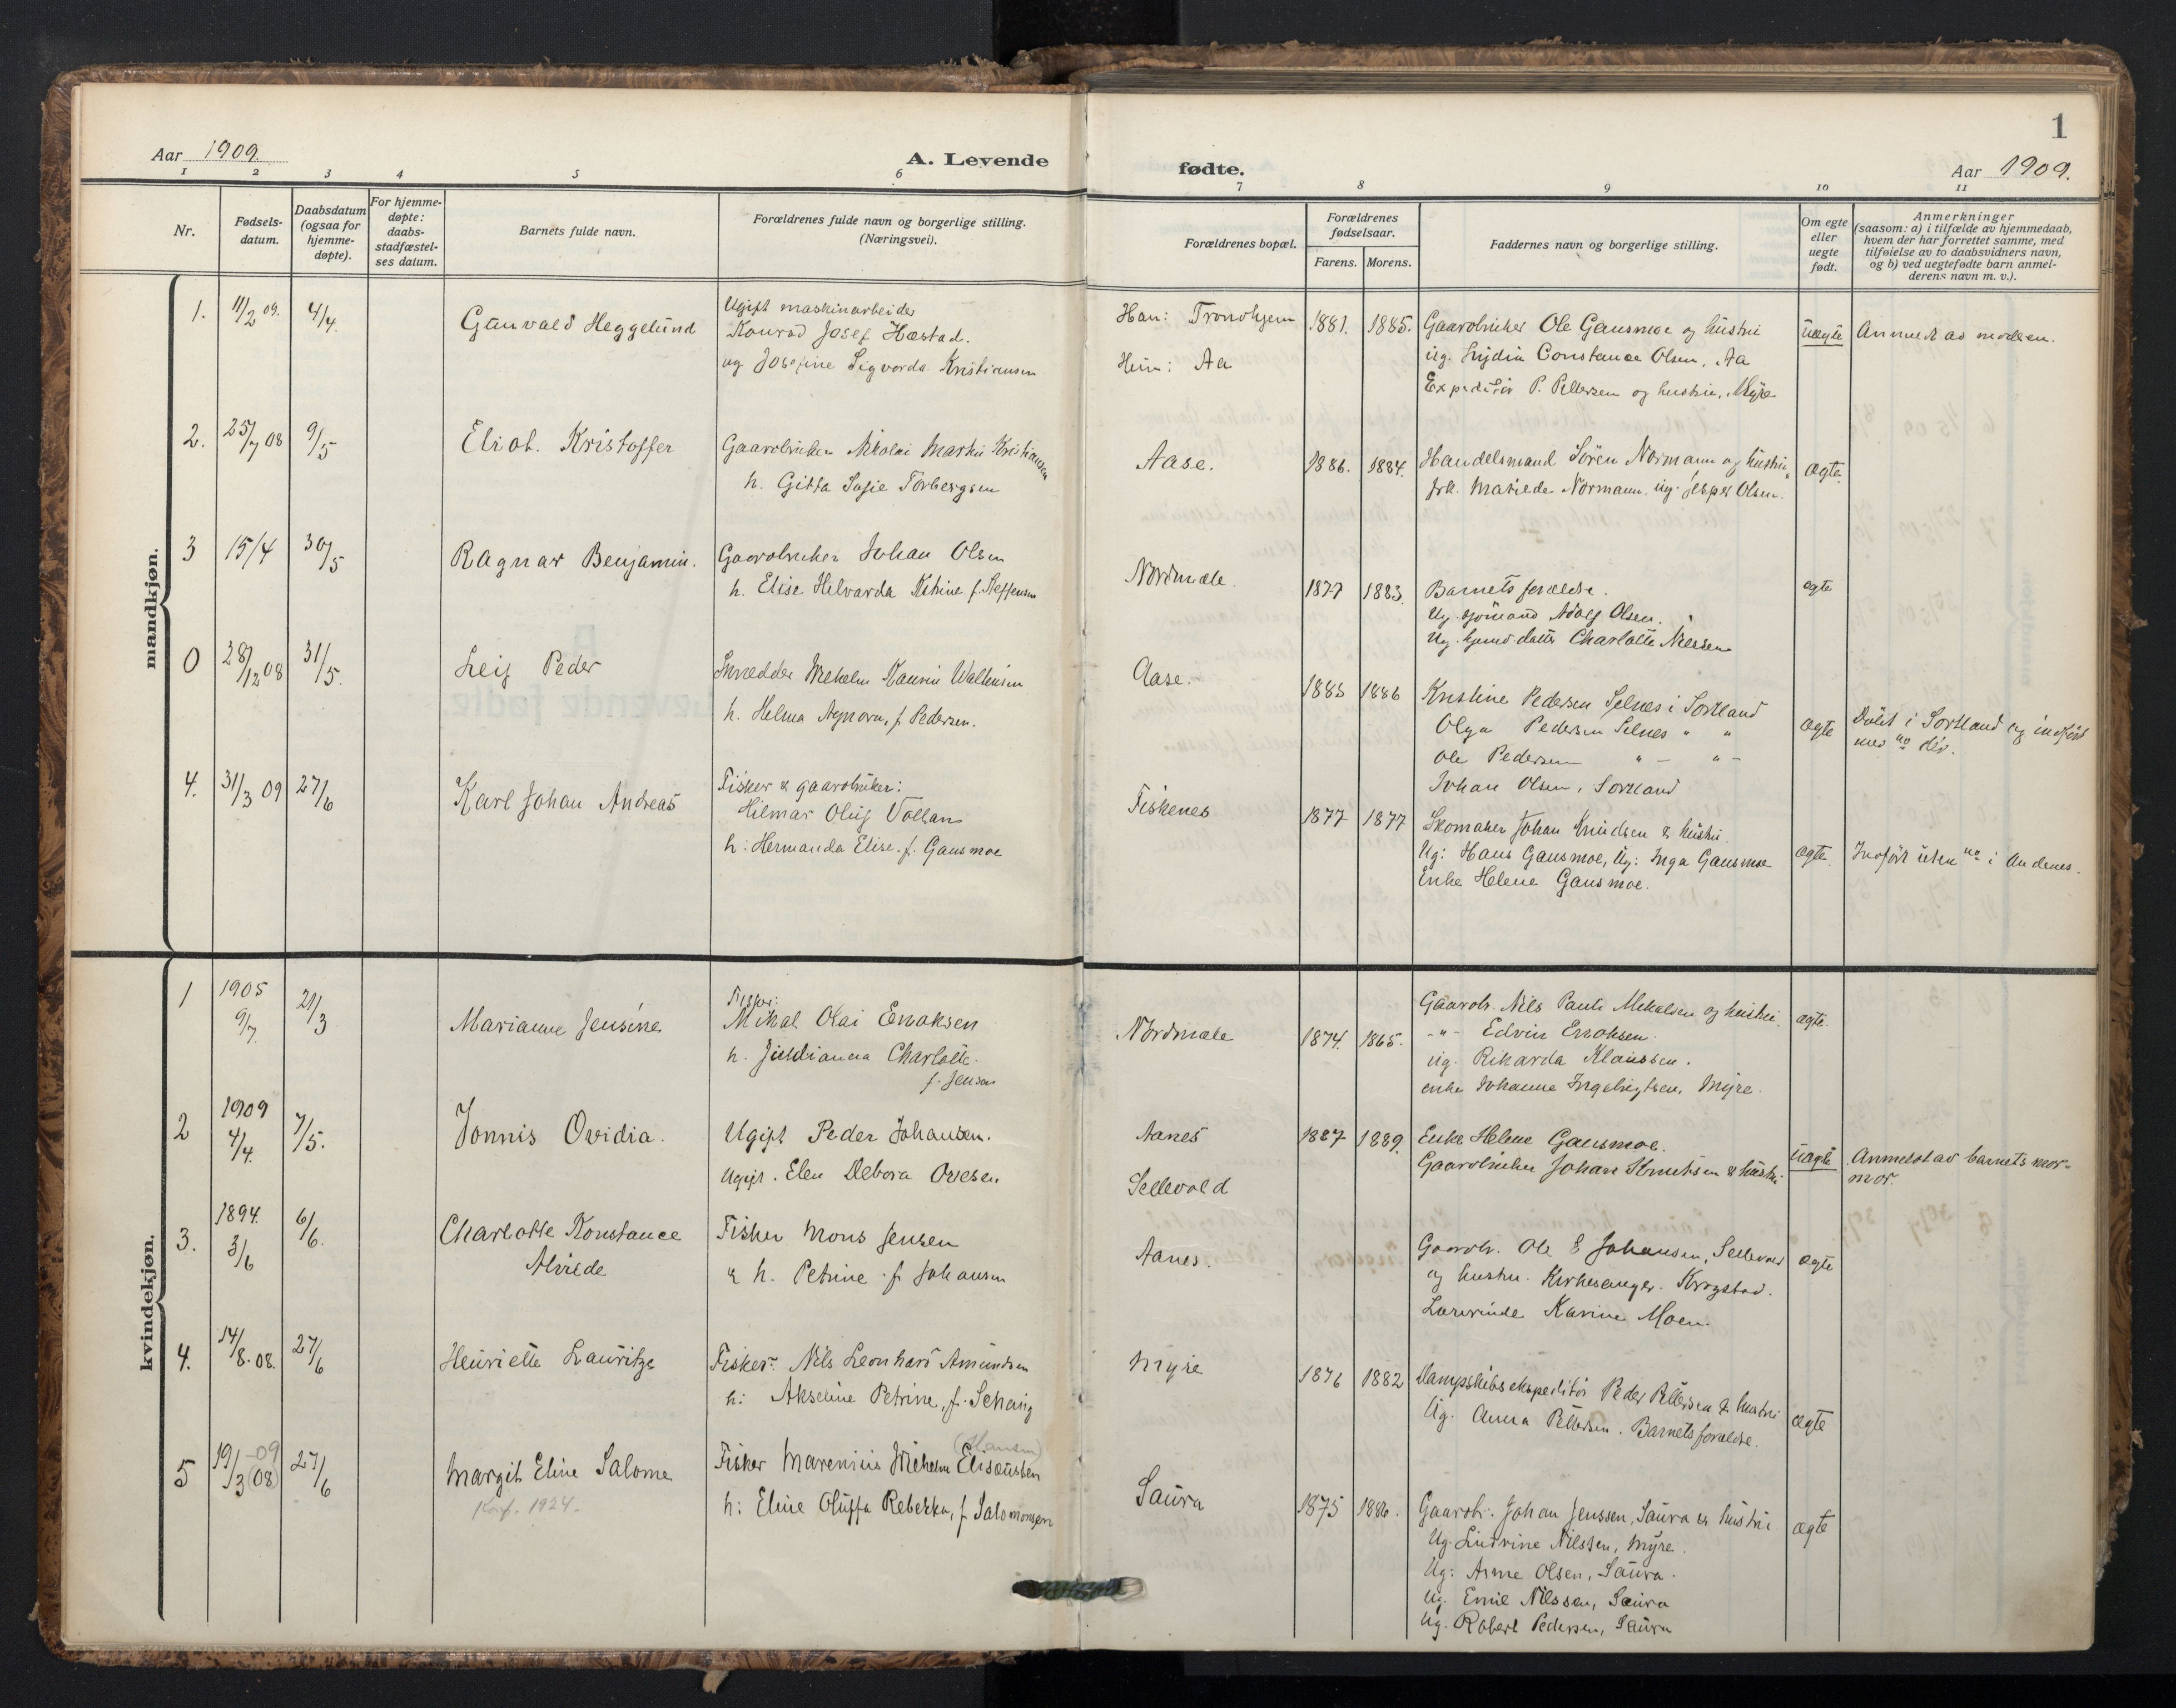 Aar 1909.
A. Levende
1 2 3 4 5 6
Nr.
Fødsels-
datum.
Daabsdatum
(ogsaa for
hjemme-
døpte).
For hjemme-
døpte:
daabs-
stadfæstel-
ses datum.
Barnets fulde navn.
Forældrenes fulde navn og borgerlige stilling.
(Næringsvei).
mandkjøn.
1. 11/2 09. 4/4. Gunvald Heggelund
Ugift maskinarbeider
Konrad Josef Hæstad.
og Josefine Sigvarda Kristiansen
2. 25/7 08 9/5 Eliot. Kristoffer
Gaardbruker Nikolai Martin Kristiansen
h. Gitta Sofie Torbergsen
3 15/4 30/5 Ragnar Benjamin.
Gaardbruker Johan Olsen
h. Elise Helvarda f. Steffensen
0 28/12 08 31/5. Leif Peder
Vilhelm
h. Helma f. Pedersen.
4. 31/3 09 27/6 Karl Johan Andreas
Fisker & gaardbruker:
Hilmar Oluf Vollan
h: Hermanda Elise. f. Gausmoe
kvindekjøn.
1 1905 9/7. 21/3 Marianne Jensine
Fisker:
Mikal Olai Enoksen
h. Charlotte
f. Jensen
2 1909 4/4. 7/5. Jonnis Ovidia.
Ugift Peder Johansen.
Ugift. Elen Debora Ovesen
3. 1894. 3/6 6/6. Charlotte Konstance
Alvilde
Fisker Mons Jensen
& h. Petrine f. Johansen
4. 14/8. 08. 27/6 Henriette Lauritze
Fisker: Nils Leonhard Amundsen
h: Akseline Petrine, f. Schanig
5 19/3 -09 (08) 27/6 Margit Eline Salome
Konf. 1924.
(Hansen)
Fisker Marenius Vilhelm Elisæussen
h: Eline Oluffa Rebekka, f Salomonsen
1
fødte.
Aar 1909.
7 8 9 10 11
Forældrenes bopæl.
Forældrenes
fødselsaar.
Farens. Morens.
Faddernes navn og borgerlige stilling.
Om egte
eller
uegte
født.
Anmerkninger
(saasom: a) i tilfælde av hjemmedaab,
hvem der har forrettet samme, med
tilføielse av to daabsvidners navn,
og b) ved uegtefødte barn anmel-
derens navn m. v.).
Han: Trondhjem 1881. 1885.
Hun: Aa
Gaardbruker Ole Gausmoe og hustru
ug. Lydia Constance Olsen, Aa
Expeditør P. Pettersen og hustru, Myre
uægte Anmeldt av moderen.
Aase. 1886. 1884.
Handelsmand Sören Normann og hustru
frk. Matilde Normann. ug. Jesper Olsen.
ægte.
Nordmæle. 1877 1883.
Barnets forældre.
Ug. sjömand Adolf Olsen.
Ug. Charlotte Nilssen
ægte
Aase. 1885 1886
Kristine Pedersen Selnes i Sortland
Olga Pedersen Selnes " "
Ole Pedersen " - " -
Johan Olsen, Sortland
ægte Döbt i Sortland og indfört
med no dér.
Fiskenes 1877 1877
Skomaker Johan Knudsen & hustru.
Ug: Hans Gausmoe, Ug: Inga Gausmoe
Enke Helene Gausmoe.
ægte. Indfört uten no i Andenes.
Nordmæle 1874. 1865.
Gaardb. Nils Pauli Mikalsen og hustru.
- " - Edvin Enoksen.
ug. Rikarda Klaussen.
enke Johanna Ingebrigtsen, Myre.
ægte.
Aanes 1887 1889.
Sellevold
Enke Helene Gausmoe.
Gaardbruker Johan Knutsen & hustru
uægte Anmeldt av barnets mor-
mor.
Aanes.
Gaardb. Ole E Johansen, Sellevold
og hustru. Kirkesanger. Krogstad.
Lærerinde Karine Moen.
ægte
Myre 1876 1882
Dampskibsekspeditör Peder Pettersen & hustru
Ug. Anna Pettersen. Barnets forældre.
ægte
Saura 1875 1886.
Gaardb. Johan Jenssen, Saura & hustru
Ug. Ludvine Nilssen, Myre.
Ug: Arne Olsen, Saura.
Ug. Emil Nilssen, Saura
Ug. Robert Pedersen, Saura
ægte